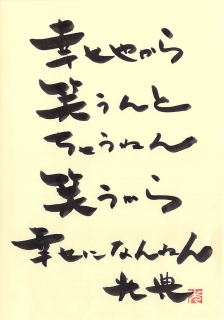 幸せやから
笑うんと
ちゃうねん
笑うから
幸せになんねん